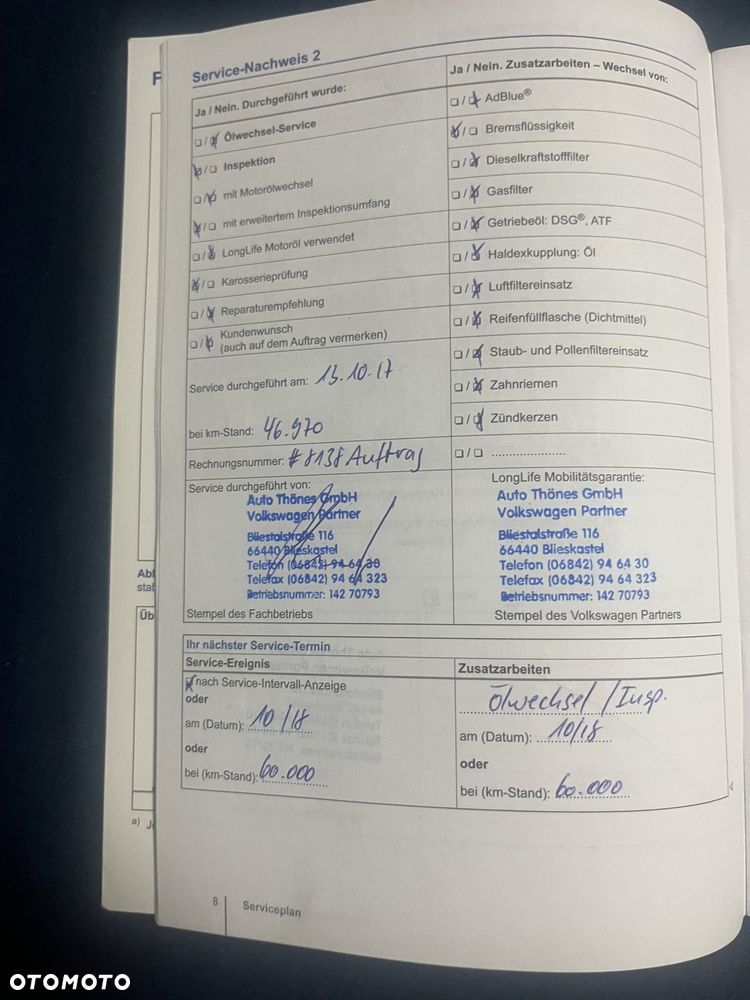 Service-Nachweis 2
Ja / Nein. Durchgeführt wurde:
❏ / ❏ Ölwechsel-Service
❏ / ❏ Inspektion
❏ / ❏ mit Motorölwechsel
❏ / ❏ mit erweitertem Inspektionsumfang
❏ / ❏ LongLife Motoröl verwendet
❏ / ❏ Karosserieprüfung
❏ / ❏ Reparaturempfehlung
❏ / ❏ Kundenwunsch
(auch auf dem Auftrag vermerken)
Service durchgeführt am: 13.10.17
bei km-Stand: 46.970
Rechnungsnummer: #8138 Auftrag
Service durchgeführt von:
Auto Thönes GmbH
Volkswagen Partner
Bliestalstraße 116
66440 Blieskastel
Telefon (06842) 94 64 30
Telefax (06842) 94 64 323
Betriebsnummer: 142 70793
Stempel des Fachbetriebs
Ja / Nein. Zusatzarbeiten – Wechsel von:
❏ / ❏ AdBlue®
❏ / ❏ Bremsflüssigkeit
❏ / ❏ Dieselkraftstofffilter
❏ / ❏ Gasfilter
❏ / ❏ Getriebeöl: DSG®, ATF
❏ / ❏ Haldexkupplung: Öl
❏ / ❏ Luftfiltereinsatz
❏ / ❏ Reifenfüllflasche (Dichtmittel)
❏ / ❏ Staub- und Pollenfiltereinsatz
❏ / ❏ Zahnriemen
❏ / ❏ Zündkerzen
❏ / ❏ ......................
LongLife Mobilitätsgarantie:
Auto Thönes GmbH
Volkswagen Partner
Bliestalstraße 116
66440 Blieskastel
Telefon (06842) 94 64 30
Telefax (06842) 94 64 323
Betriebsnummer: 142 70793
Stempel des Volkswagen Partners
Ihr nächster Service-Termin
Service-Ereignis
nach Service-Intervall-Anzeige
oder
am (Datum): 10/18
oder
bei (km-Stand): 60.000
Zusatzarbeiten
Ölwechsel / Insp.
am (Datum): 10/18
oder
bei (km-Stand): 60.000
8
Serviceplan
F
Üb
a)
OTOMOTO